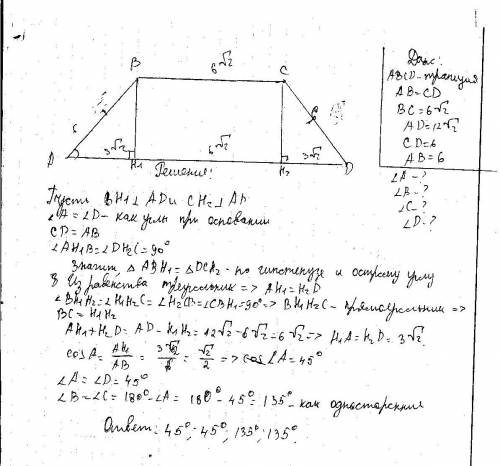 B
6√2
C
6
6
A
3√2
H1
6√2
H2
3√2
D
Дано:
ABCD - трапеция
AB = CD
BC = 6√2
AD = 12√2
CD = 6
AB = 6
∠A - ?
∠B - ?
∠C - ?
∠D - ?
Решение:
Пусть BH1 ⊥ AD и CH2 ⊥ AD
∠A = ∠D - как углы при основании
CD = AB
∠AH1B = ∠DH2C = 90°
Значит, △ABH1 = △DCH2 - по гипотенузе и острому углу
Из равенства треугольник => AH1 = H2D
∠BH1H2 = ∠H1H2C = ∠H2CB = ∠CBH1 = 90° => BH1H2C - прямоугольник =>
BC = H1H2
AH1 + H2D = AD - H1H2 = 12√2 - 6√2 = 6√2 => H1A = H2D = 3√2
cos A = AH1/AB = 3√2/6 = √2/2 => cos ∠A = 45°
∠A = ∠D = 45°
∠B = ∠C = 180° - ∠A = 180° - 45° = 135° - как односторонние
Ответ: 45°; 45°; 135°; 135°.